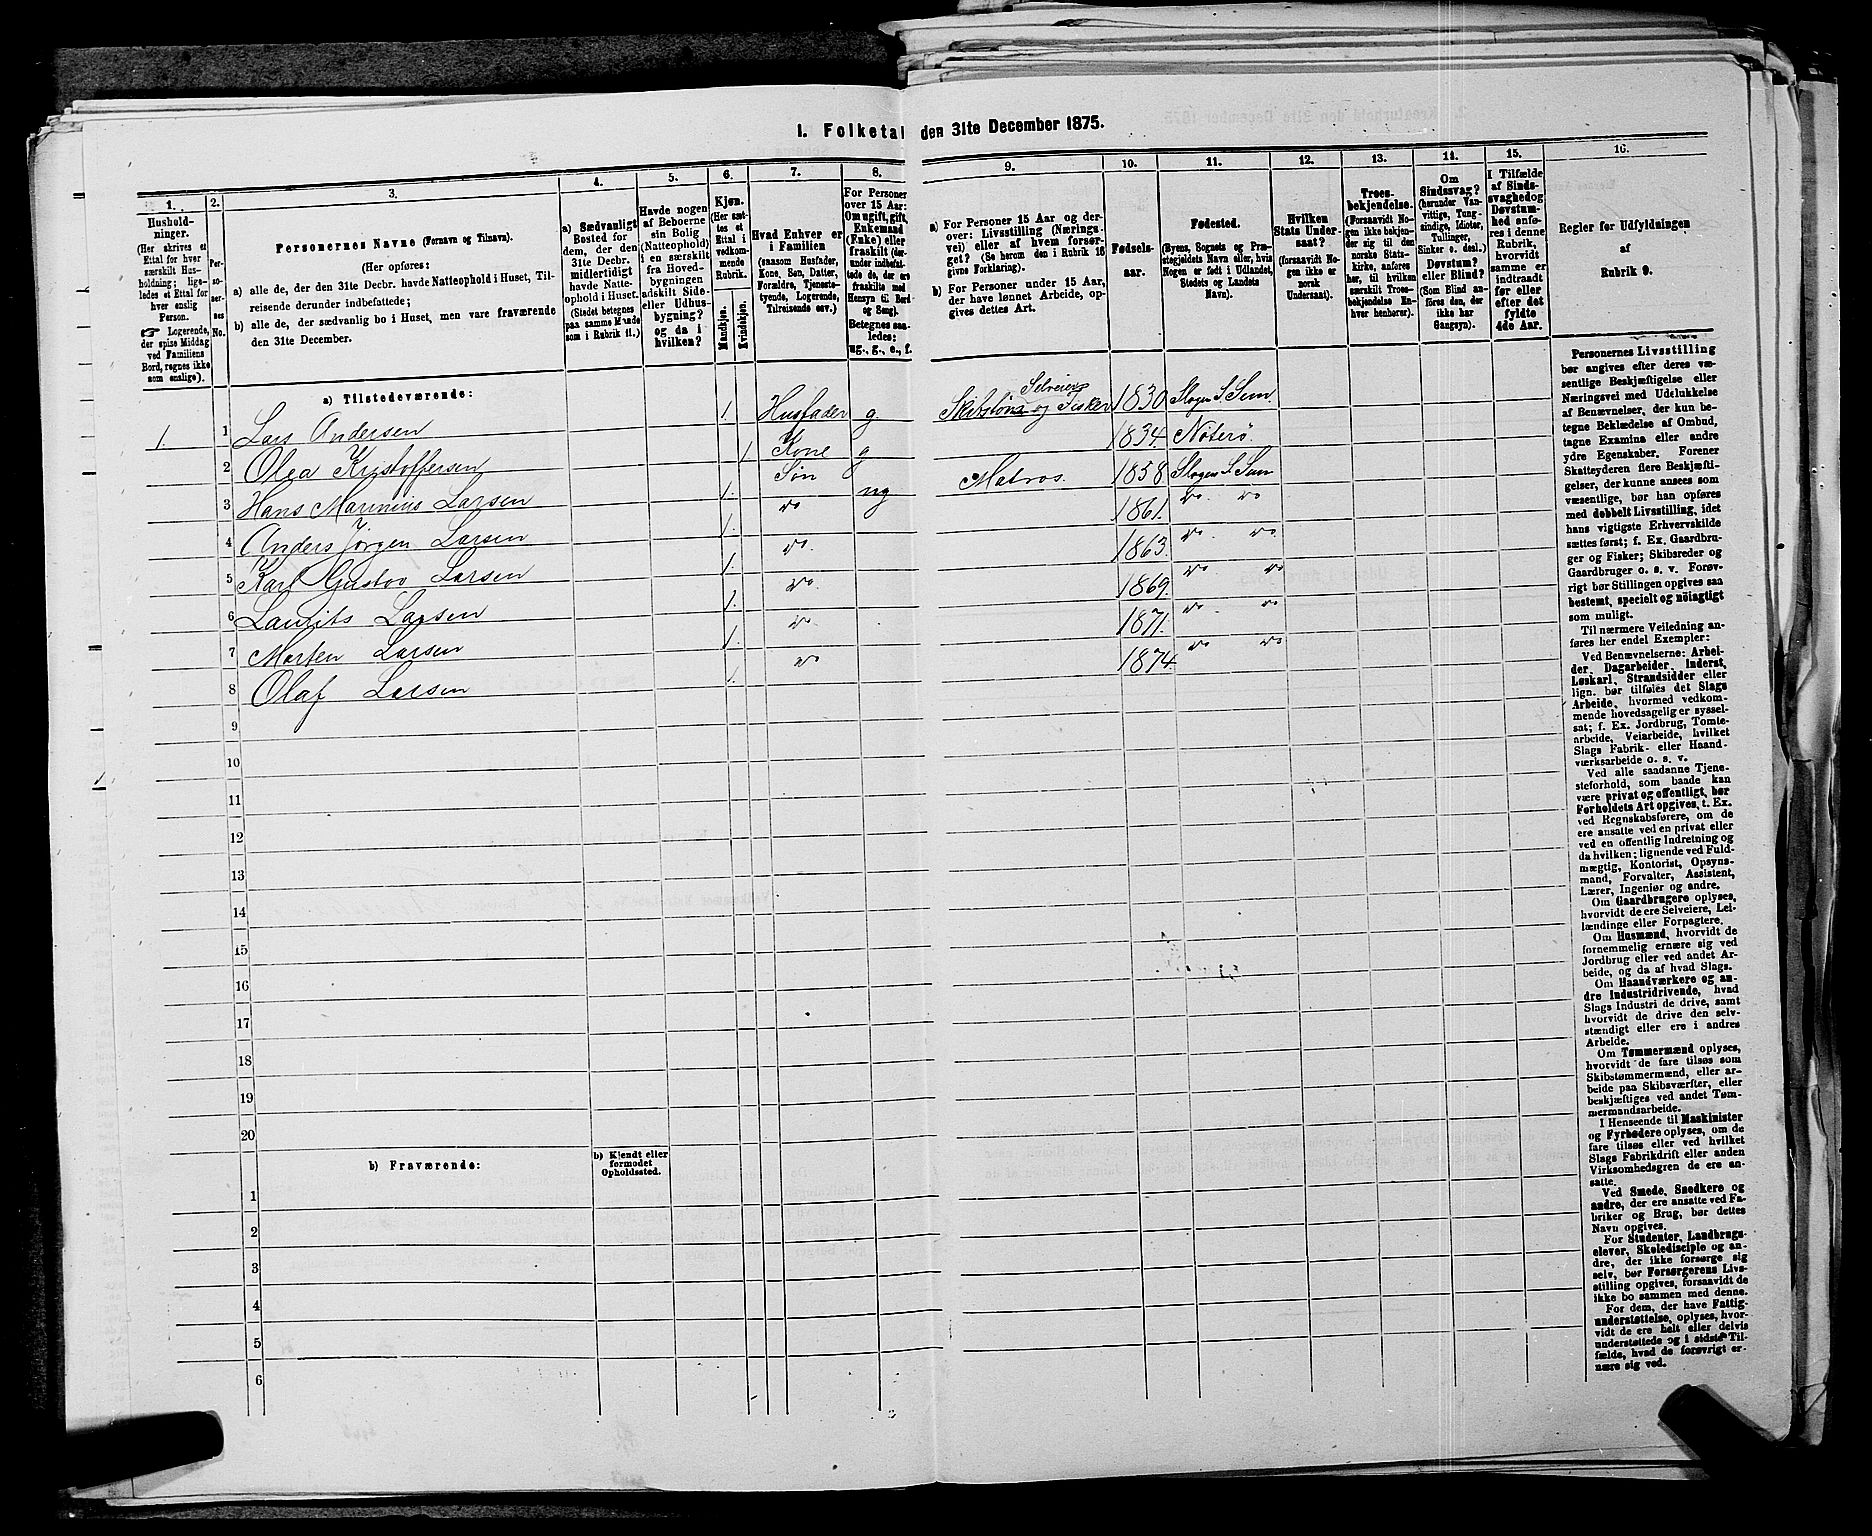 1. Folketal den 31te December 1875.
1.
Hushold-
ninger.
(Her skrives et
Ettal for hver
særskilt Hus-
holdning; lige-
ledes et Ettal for
hver enslig
Person.
☞ Logerende,
der spise Middag
ved Familiens
Bord, regnes ikke
som enslige).
2.
Per-
so-
ner-
nes
No.
3.
Personernes Navne (Fornavn og Tilnavn).
(Her opføres:
a) alle de, der den 31te Decbr. havde Natteophold i Huset, Til-
reisende derunder indbefattede;
b) alle de, der sædvanlig bo i Huset, men vare fraværende
den 31te December.
4.
a) Sædvanligt
Bosted for
dem, der den
31te Decbr.
midlertidigt
havde Natte-
ophold i Huset.
(Stedet betegnes
paa samme Maade
som i Rubrik 11.)
5.
Havde nogen
af Beboerne
sin Bolig
(Natteophold)
i en særskilt
fra Hoved-
bygningen
adskilt Side-
eller Udhus-
bygning?
og da i
hvilken?
6.
Kjøn.
(Her sæt-
tes et
Ettal i
vedkom-
mende
Rubrik.
Mandkjøn.
Kvindekjøn.
7.
Hvad Enhver er
i Familien
(saasom Husfader,
Kone, Søn, Datter,
Forældre, Tjeneste-
tyende, Logerende,
Tilreisende osv.)
8.
For Personer
over 15 Aar:
Om ugift, gift,
Enkemand
(Enke) eller
fraskilt (der-
under indbefat-
tede de, der ere
fraskilte med
Hensyn til Bord
og Seng).
Betegnes saa-
ledes:
ug., g., e., f.
9.
a) For Personer 15 Aar og der-
over: Livsstilling (Nærings-
vei) eller af hvem forsør-
get? (Se herom den i Rubrik 16
givne Forklaring).
b) For Personer under 15 Aar,
der have lønnet Arbeide, op-
gives dettes Art.
10.
Fødsels-
aar.
11.
Fødested.
(Byens, Sognets og Præ-
stegjeldets Navn eller, hvis
Nogen er født i Udlandet,
Stedets og Landets
Navn).
12.
Hvilken
Stats Under-
saat?
(forsaavidt No-
gen ikke er
norsk
Undersaat).
13.
Troes-
bekjendelse.
(Forsaavidt No-
gen ikke bekjen-
der sig til den
norske Stats-
kirke, anføres
her, til hvilken
særskilt Troes-
bekjendelse En-
hver henhører).
14.
Om
Sindssvag?
(herunder Van-
vittige, Tung-
sindige, Idioter,
Tullinger,
Sinker o. desl.)
Døvstum?
eller Blind?
(Som Blind an-
føres den, der
ikke har
Gangsyn).
15.
I Tilfælde
af Sinds-
svaghed og
Døvstum-
hed anfø-
res i denne
Rubrik,
hvorvidt
samme er
indtraadt
før eller
efter det
fyldte
4de Aar.
16.
Regler for Udfyldningen
af
Rubrik 9.
a) Tilstedeværende:
1. 1 Lars Andersen 1. Husfader g Skibstöm og Fisker Selveier 1830 Slagen S. Sem.
2 Olea Kristoffersen 1 Kone g 1834. Nöterö.
3 Hans Marinius Larsen 1. Søn ug Matros. 1858 Slagen S. Sem
4 Anders Jörgen Larsen 1. do 1861. do. do
5 Karl Gustav Larsen 1. do. 1863. do. do.
6 Laurits Larsen 1. do. 1869. do do
7 Morten Larsen 1. do. 1871. do. do
8 Olaf Larsen 1. do 1874. do do
9
10
11
12
13
14
15
16
17
18
19
20
b) Fraværende:
b) Kjendt eller
formodet
Opholdssted.
1
2
3
4
5
6
Personernes Livsstilling
bør angives efter deres væ-
sentlige Beskjæftigelse eller
Næringsvei med Udelukkelse
af Benævnelser, der kun be-
tegne Beklædelse af Ombud,
tagne Examina eller andre
ydre Egenskaber. Forener
Skatteyderen flere Beskjæfti-
gelser, der kunne ansees som
væsentlige, bør han opføres
med dobbelt Livsstilling, idet
hans vigtigste Erhvervskilde
sættes først; f. Ex. Gaardbru-
ger og Fisker; Skibsreder og
Gaardbruger o. s. v. Forøv-
rigt bør Stillingen opgives saa
bestemt, specielt og nöiagtigt
som muligt.
Til nærmere Veiledning an-
føres her endel Exempler:
Ved Benævnelserne: Arbei-
der, Dagarbeider, Inderst,
Løskarl, Strandsidder eller
lign. bør tilføies det Slags
Arbeide, hvormed vedkom-
mende hovedsagelig er syssel-
sat; f. Ex. Jordbrug, Tomte-
arbeide, Veiarbeide, hvilket
Slags Fabrik- eller Haand-
værksarbeide o. s. v.
Ved alle saadanne Tjene-
steforhold, som baade kan
være privat og offentligt, bør
Forholdets Art opgives, t. Ex.
ved Regnskabsførere, om de
ere ansatte ved en privat eller
ved en offentlig Indretning og
da hvilken; lignende ved Fuld-
mægtig, Kontorist, Opsyns-
mand, Forvalter, Assistent,
Lærer, Ingeniør og andre.
Om Gaardbrugere oplyses,
hvorvidt de ere Selveiere, Lei-
lændinge eller Forpagtere.
Om Husmænd, hvorvidt de
fornemmelig ernære sig ved
Jordbrug eller ved andet Ar-
beide, og da af hvad Slags.
Om Haandværkere og an-
dre Industridrivende, hvad
Slags Industri de drive, samt
hvorvidt de drive den selv-
stændigt eller ere i andres
Arbeide.
Om Tømmermænd oplyses,
hvorvidt de fare tilsøs som
Skibstømmermænd, eller ar-
beide paa Skibsværfter, eller
beskjæftiges ved andet Tøm-
mermandsarbeide.
I Henseende til Maskinister
og Fyrbødere oplyses, om de
fare tilsøs eller ved hvilket
Slags Fabrikdrift eller anden
Virksomhedsgren de ere an-
satte.
Ved Smede, Snedkere og
andre, der ere ansatte ved Fa-
briker og Brug, bør dettes
Navn opgives.
For Studenter, Landbrugs-
elever, Skoledisciple og an-
dre, der ikke forsørge sig
selv, bør Forsørgerens Livs-
stilling opgives, forsaavidt de
ikke bo sammen med denne.
For dem, der have Fattig-
understøttelse, oplyses, hvor-
vidt de ere helt eller delvis
understøttede og i sidste Til-
fælde, hvad de forøvrigt er-
nære sig ved.